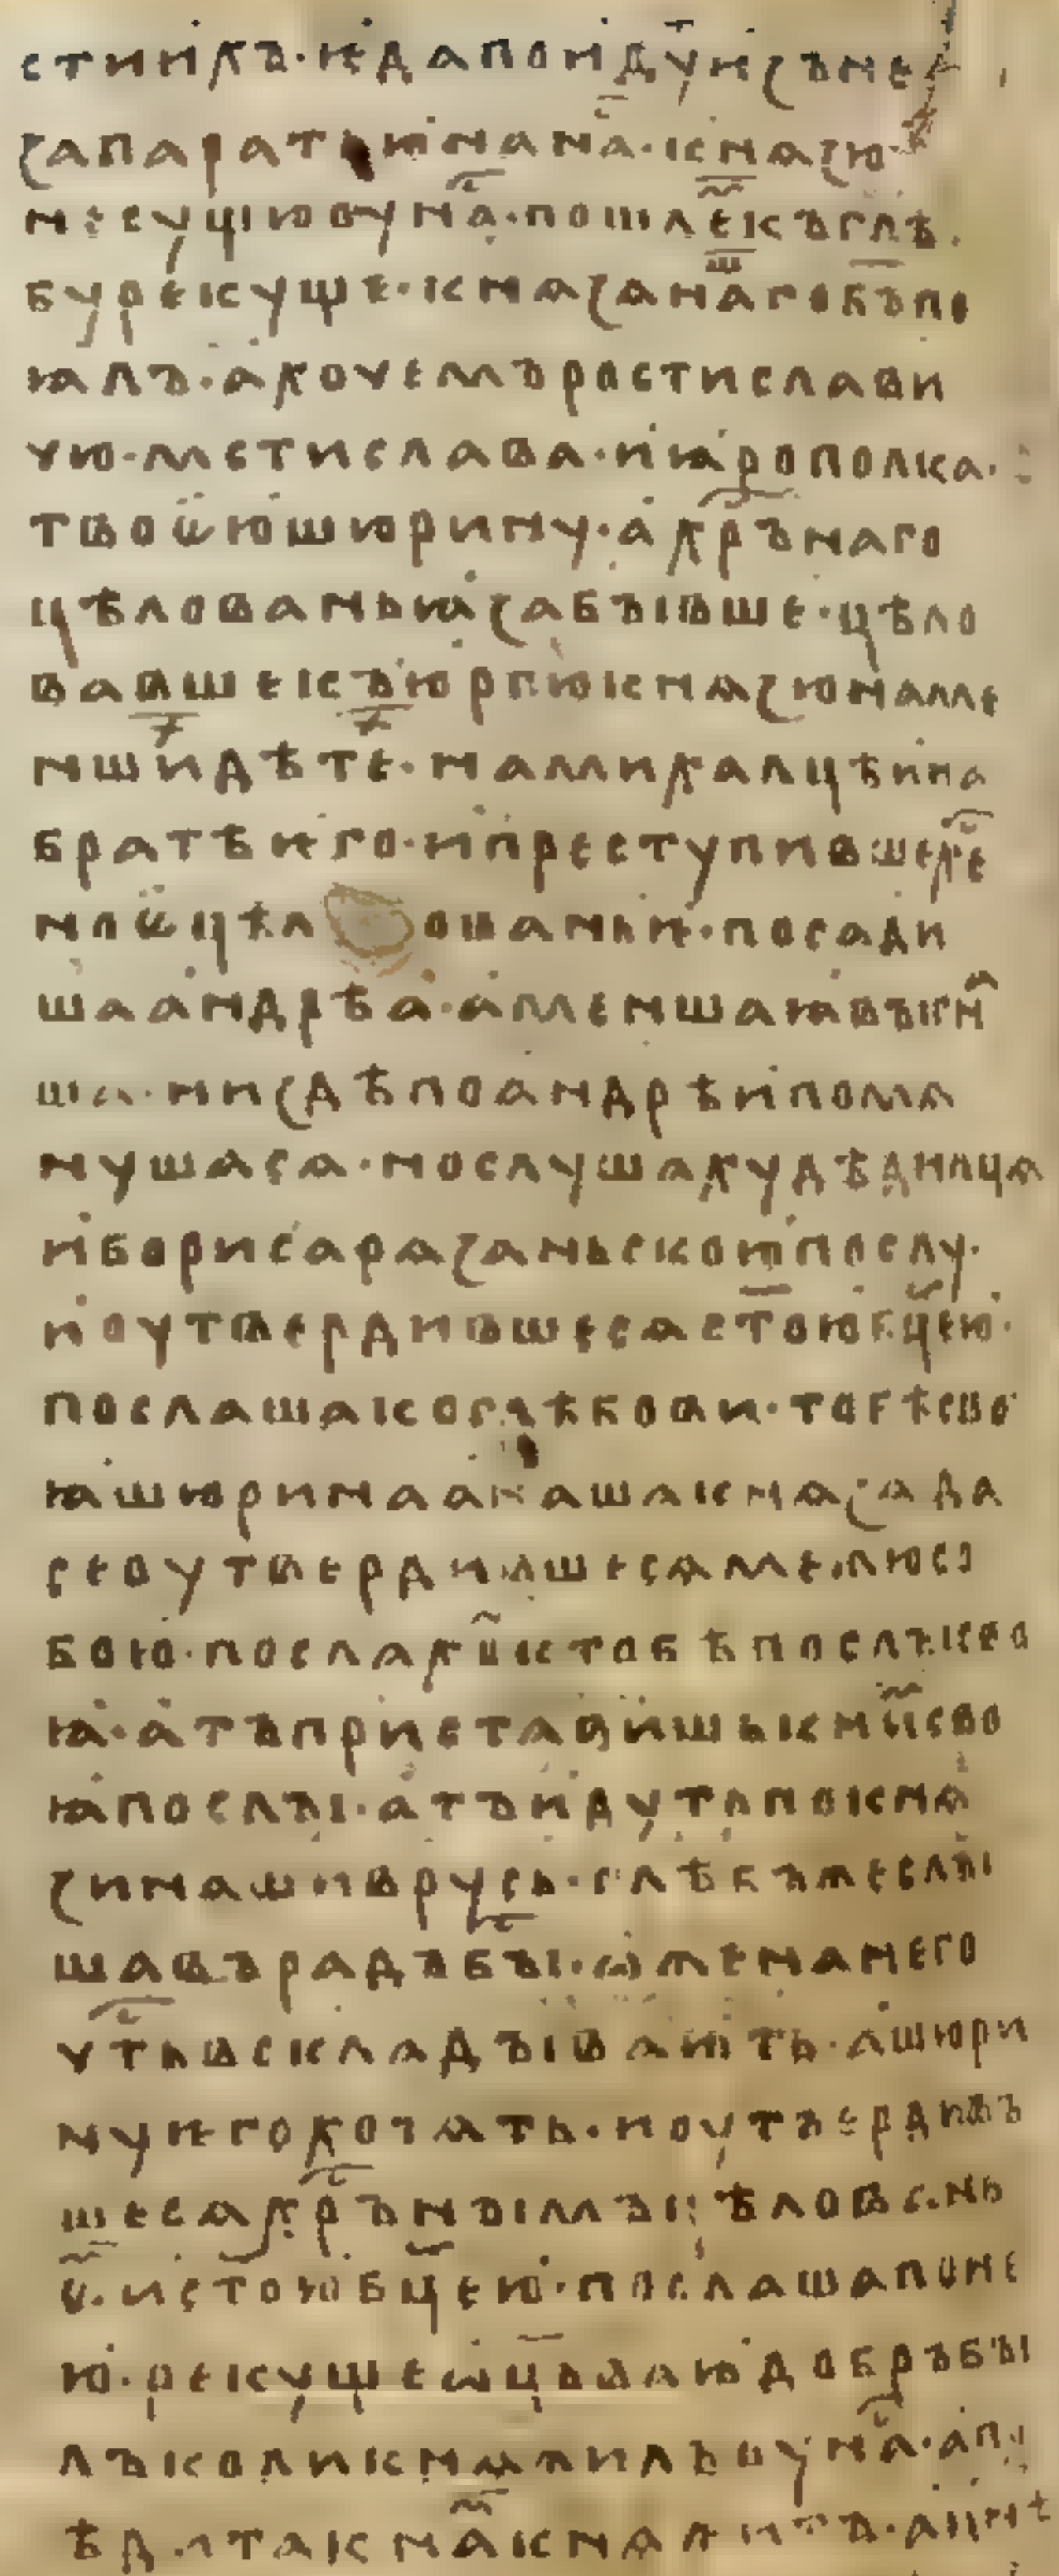 стинкъ · и да поиду и съне
за па ратью на на · кнѧзю
не сущю оу на · пошлемъ къ глѣ
бу рекуще · кнѧзѧ наго бъ по
ꙗлъ · а хочемъ ростислави
чю · мстислава · и ꙗрополка ·
твоею шюрину · а хрⷭъ наго
цѣлованьꙗ забывше · цѣло
вавше къ юргю кнѧзю на ме
нших дѣтех · на михалцѣ и на
братѣ ѥго · и преступивше хрⷭе
ное цѣл ованьѥ · посади
ша андрѣꙗ · а меншаꙗ выгна
ша · ни здѣ по андрѣи помѧ
нушасѧ · но слушаху дѣдилцѧ
и бориса рѧзаньскою послу ·
и оутвердившесѧ стою бцею ·
послаша ко глѣбови · тобѣ сво
ꙗ шюрина а наша кнѧзѧ да
се оутвердившесѧ межю со
бою · послахом к тобѣ послъı сво
ꙗ · атъ приставишь к ним сво
ꙗ послъı · атъ идуть по кнѧ
зи наши в русь · глѣбъ же слъı
шавъ радъ бъı · ѡже на него
чⷭть въскладъıваюⷮть · а шюри
ну ѥго хотѧть · и оутвердивъ
шесѧ хрⷭъ нъıмь цѣлованьѥ
м · и стою бцею · послаша по не
ю · рекуще ѡць ваю добръ бъı
лъ коли кнѧжилъ оу насъ · а по
ѣдита к нам кнѧжитъ · а инѣ